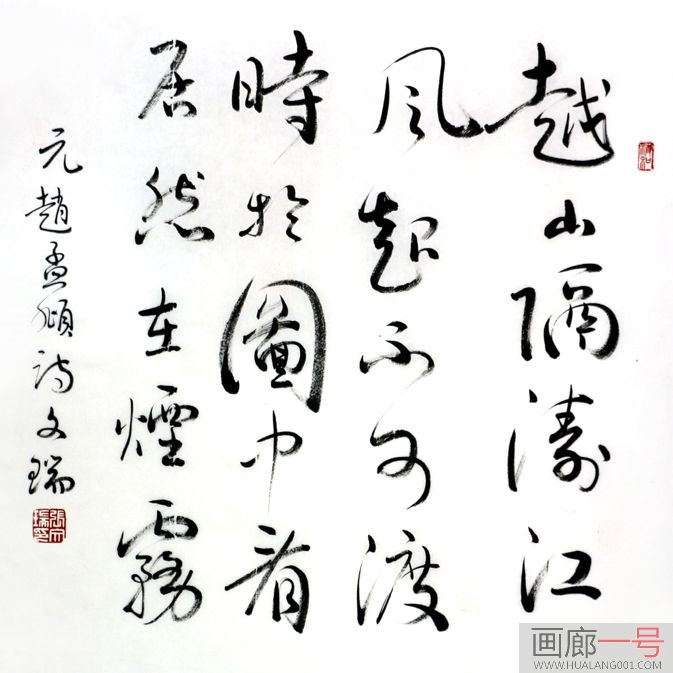 越山隔濤江
風起不可渡
時於圖中看
居然在煙霧
元趙孟頫詩文瑞
張文瑞印
画廊一号
WWW.HUALANG001.COM